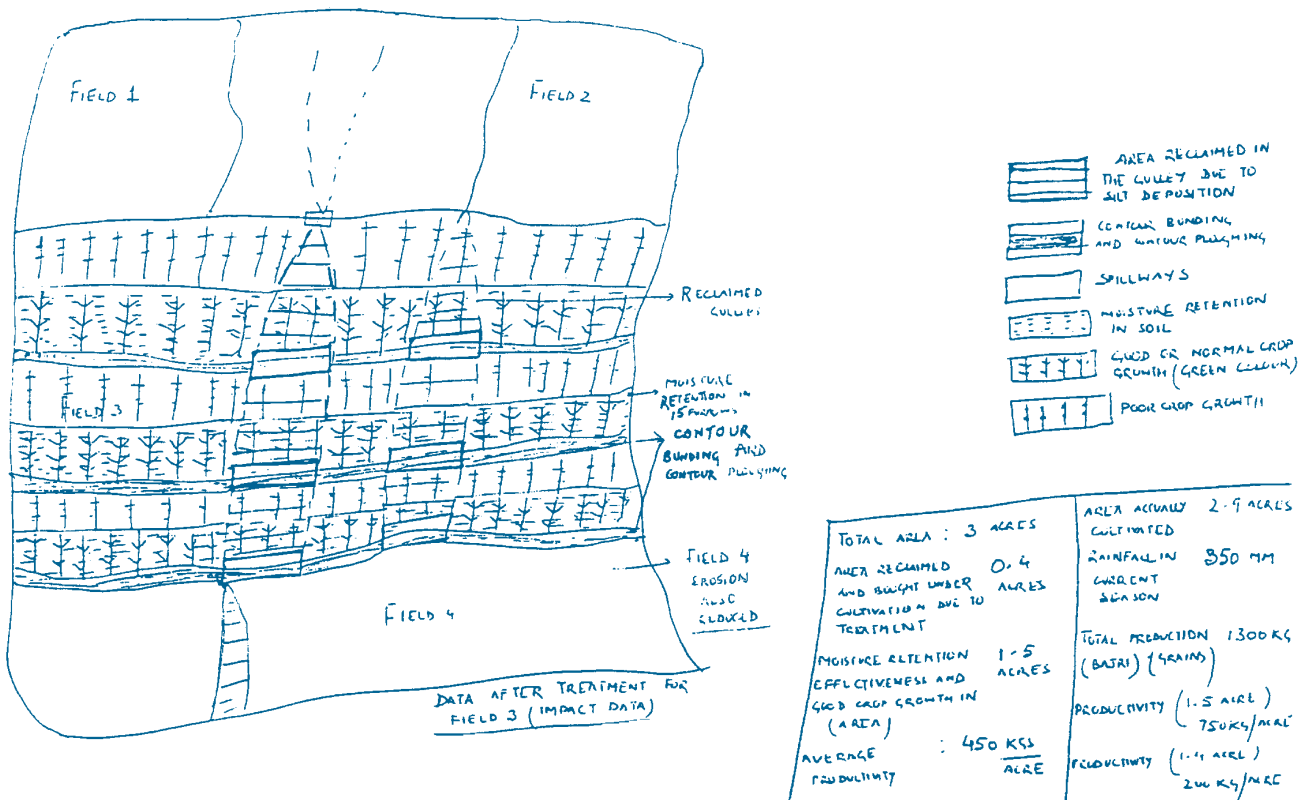 FIELD 1
FIELD 2
RECLAIMED
GULLIES
MOISTURE
RETENTION IN
FIELD 3
CONTOUR
BUNDING AND
CONTOUR PLOUGHING
FIELD 4
EROSION
ALSO
FIELD 4
DATA AFTER TREATMENT FOR
FIELD 3 (IMPACT DATA)
AREA RECLAIMED IN
THE GULLEY DUE TO
SILT DEPOSITION
CONTOUR BUNDING
AND CONTOUR PLOUGHING
SPILLWAYS
MOISTURE RETENTION
IN SOIL
GOOD OR NORMAL CROP
GROWTH (GREEN COLOUR)
POOR CROP GROWTH
TOTAL AREA : 3 ACRES
AREA RECLAIMED 0.4
AND BOUGHT UNDER ACRES
CULTIVATION DUE TO
TREATMENT
MOISTURE RETENTION 1.5
EFFECTIVENESS AND ACRES
GOOD CROP GROWTH IN
(AREA)
AVERAGE : 450 KGS
PRODUCTIVITY ACRE
AREA ACTUALLY 2.9 ACRES
CULTIVATED
RAINFALL IN 350 MM
CURRENT
SEASON
TOTAL PRODUCTION 1300 KG
(BAJRI) (GRAINS)
PRODUCTIVITY (1.5 ACRE)
750 KG/ACRE
PRODUCTIVITY (1.4 ACRE)
200 KG/ACRE